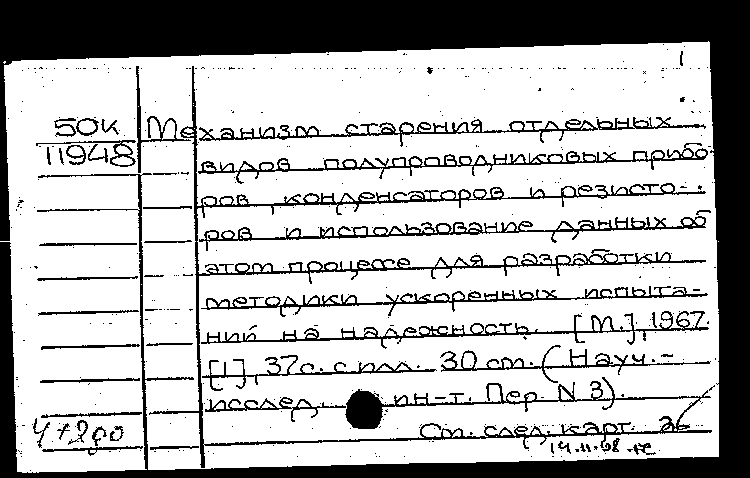 1
50К Механизм старения отдельных
11948 видов полупроводниковых прибо-
ров, конденсаторов и резисто-
ров и использование данных об
этом процессе для разработки
методики ускоренных испыта-
ний на надежность. [М.], 1967.
[1], 37с. с илл. 30 см. (Науч.-
исслед. ин-т. Пер. N 3).
См. след. карт.